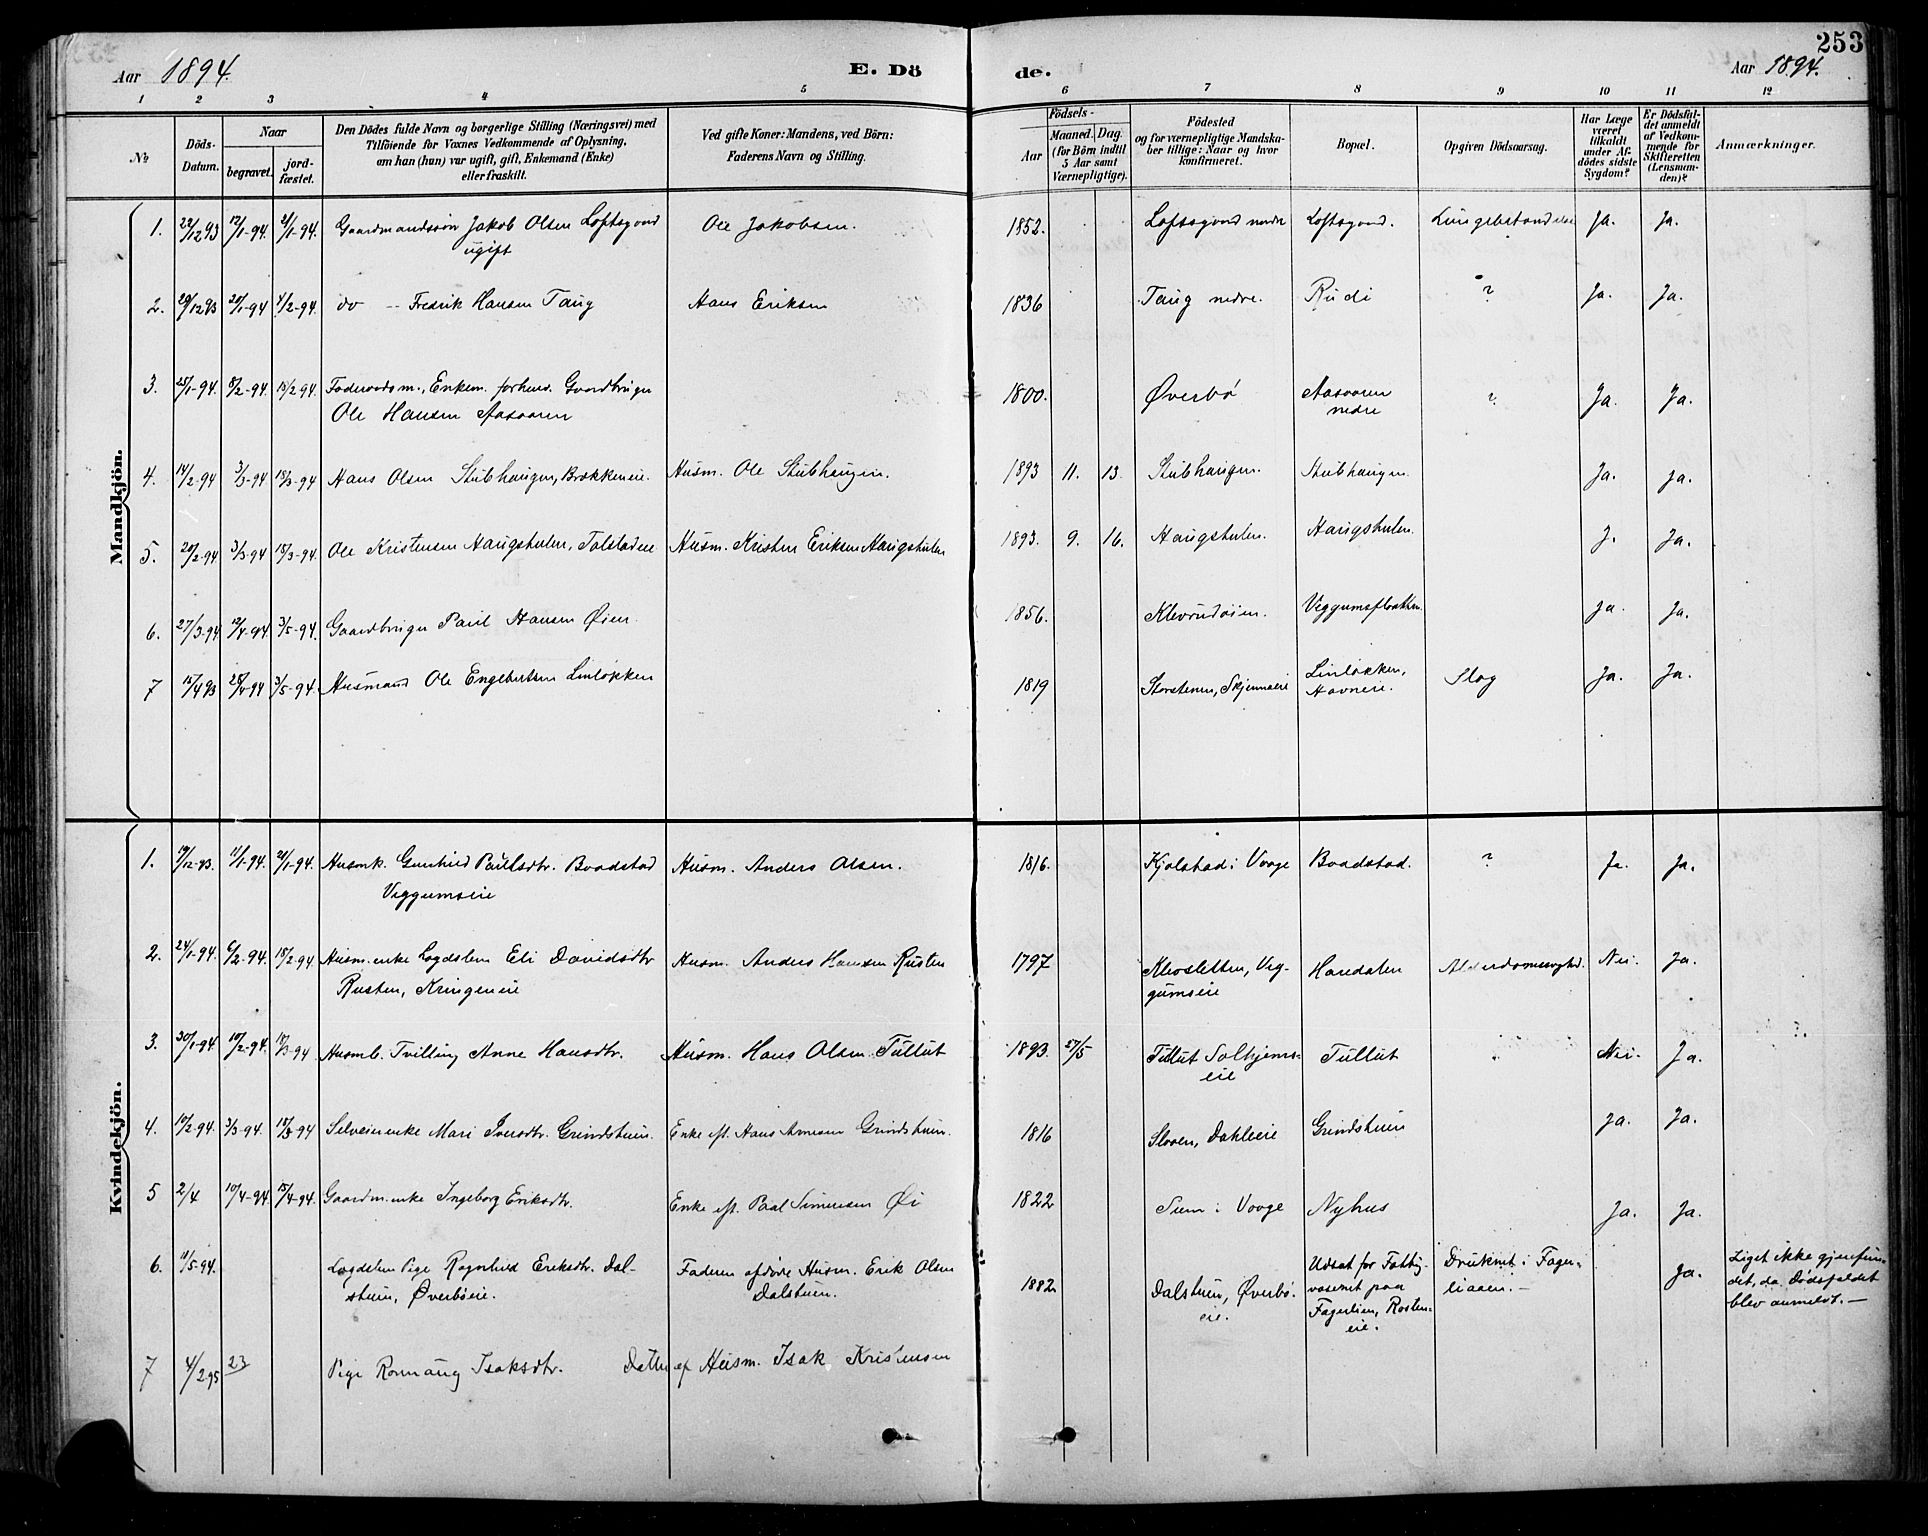 253
Aar 1894.
E. Döde.
Aar 1894.
1 2 3 4 5 6 7 8 9 10 11 12
No
Döds-Datum.
Naar
begravet.
jordfæstet.
Den Dödes fulde Navn og borgerlige Stilling (Næringsvei) med
Tilföiende for Voxnes Vedkommende af Oplysning,
om han (hun) var ugift, gift, Enkemand (Enke)
eller fraskilt.
Ved gifte Koner: Mandens, ved Börn:
Faderens Navn og Stilling.
Födsels-
Aar
Maaned. Dag.
(for Börn indtil
5 Aar samt
Værnepligtige).
Födested
og for værnepligtige Mandskaber tillige: Naar og hvor
konfirmeret.
Bopæl.
Opgiven Dödsaarsag.
Har Læge
været
tilkaldt
under Afdödes sidste
Sygdom?
Er Dödsfaldet anmeldt
af Vedkommende for
Skifteretten
(Lensmanden)?
Anmærkninger.
Mandkjön.
1. 29/12 93 12/1-94. 21/1-94. Gaardmandssön Jakob Olsen Loftsgaard Ole Jakobsen. 1852. Loftsgaard nedre Loftsgaard. Ja. Ja.
ugift
2. 29/12 93 20/1-94 4/2-94. do - Fredrik Hansen Taug Hans Eriksen 1836 Taug nedre. Rudi ? Ja. Ja.
3. 25/1-94. 8/2-94. 18/2 94. Enkem. forhenv. Gaardbruger 1800. Øverbö Aasaaren ? Ja. Ja.
Ole Hansen Aasaaren nedre
4. 14/2-94 3/3-94 18/3-94 Hans Olsen Stubhaugen, Brækkeneie. Husm. Ole Stubhaugen. 1893 11. 13. Stubhaugen. Stubhaugen. Ja. Ja.
5. 20/2-94 3/3-94 18/3-94. Ole Kristensen Haugshulen, Tolstadeie Husm. Kristen Eriksen Haugshulen 1893. 9. 16. Haugshulen. Haugshulen. J. Ja.
6. 27/3-94. 12/4-94. 3/5-94. Gaardbruger Paul Hansen Øien. 1856. Klevrudöien. Veggumsflaatten. Ja. Ja.
7 15/4 93 28/4-94 3/5-94. Husmand Ole Engebretsen Linløkken 1819 Storstenen, Skjenneeie Linløkken, Slag Ja. Ja.
Havneie.
Kvindekjön.
1. 19/12-93. 11/1-94. 21/1-94. Husmk. Gunhild Paulsdtr. Baadstad Husm. Anders Olsen. 1816. Kjolstad i Vaage Baadstad. ? Ja. Ja.
Veggumseie
2. 24/1-94. 6/2-94. 18/2-94 Husm.enke Lægdslem Eli Davidsdtr Husm. Anders Hansen Rusten 1797 Klevsletten, Veggumseie Haudalen Alderdomssvaghed. Nei. Ja.
Rusten, Kringeneie
3. 30/1-94 10/2-94. 18/3-94 Husmb. Tvilling Anne Hansdtr. Husm. Hans Olsen Tullut 1893. 27/5 Tullut Solhjemseie Tullut Nei. Ja.
4. 19/2-94. 3/3-94. 18/3-94 Selveierenke Mari Iversdtr. Grindstuen. Enke eft. Hans Arnesen Grindstuen. 1816 Sloen, Dahleeie Grindstuen Ja. Ja.
5 2/4 10/4-94 15/4-94. Gaardm.enke Ingeborg Eriksdtr. Enke eft. Paal Simensen Öi 1822 Sem i Vaage Nyhus Ja. Ja.
6. 11/5-94. Lægdslem Pige Ragnhild Eriksdtr. Dalstuen, Øverböeie. Faderen afdöde Husm. Erik Olsen Dalstuen. 1882 Dalstuen, Øverböeie. Udsat for Fattigvæsenet paa Fagerlien, Rosteneie. Druknet i Fagerliaaen. - Ja. Liget ikke gjenfundet, da Dödsfaldet
blev anmeldt. -
7 4/2 95 23 Pige Rønnaug Isaksdtr. Datter af Husm. Isak Kristensen